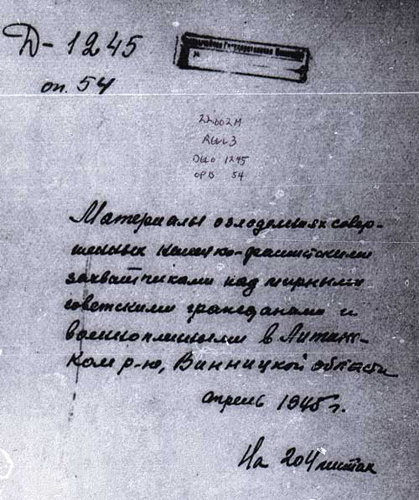 Д-1245
оп. 54
22.002M
Reel 3
Dело 1245
OPB 54
Материалы о злодеяниях совер-
шенных немецко-фашистскими
захватчиками над мирными
советскими гражданами и
военнопленными в Литин-
ском р-ю, Винницкой области
апрель 1945 г.
На 204 листах